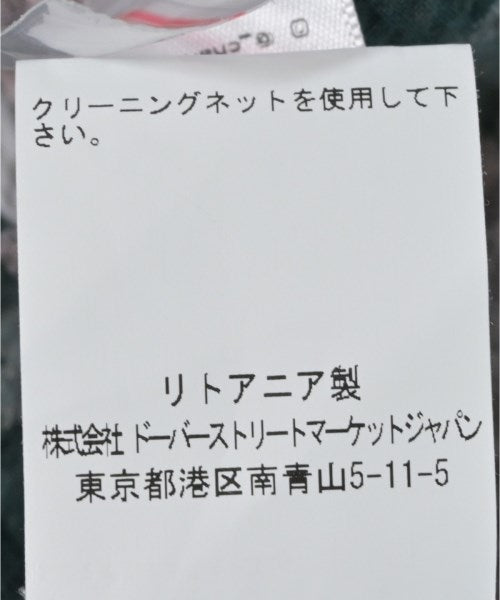 クリーニングネットを使用して下
さい。
リトアニア製
株式会社 ドーバーストリートマーケットジャパン
東京都港区南青山5-11-5